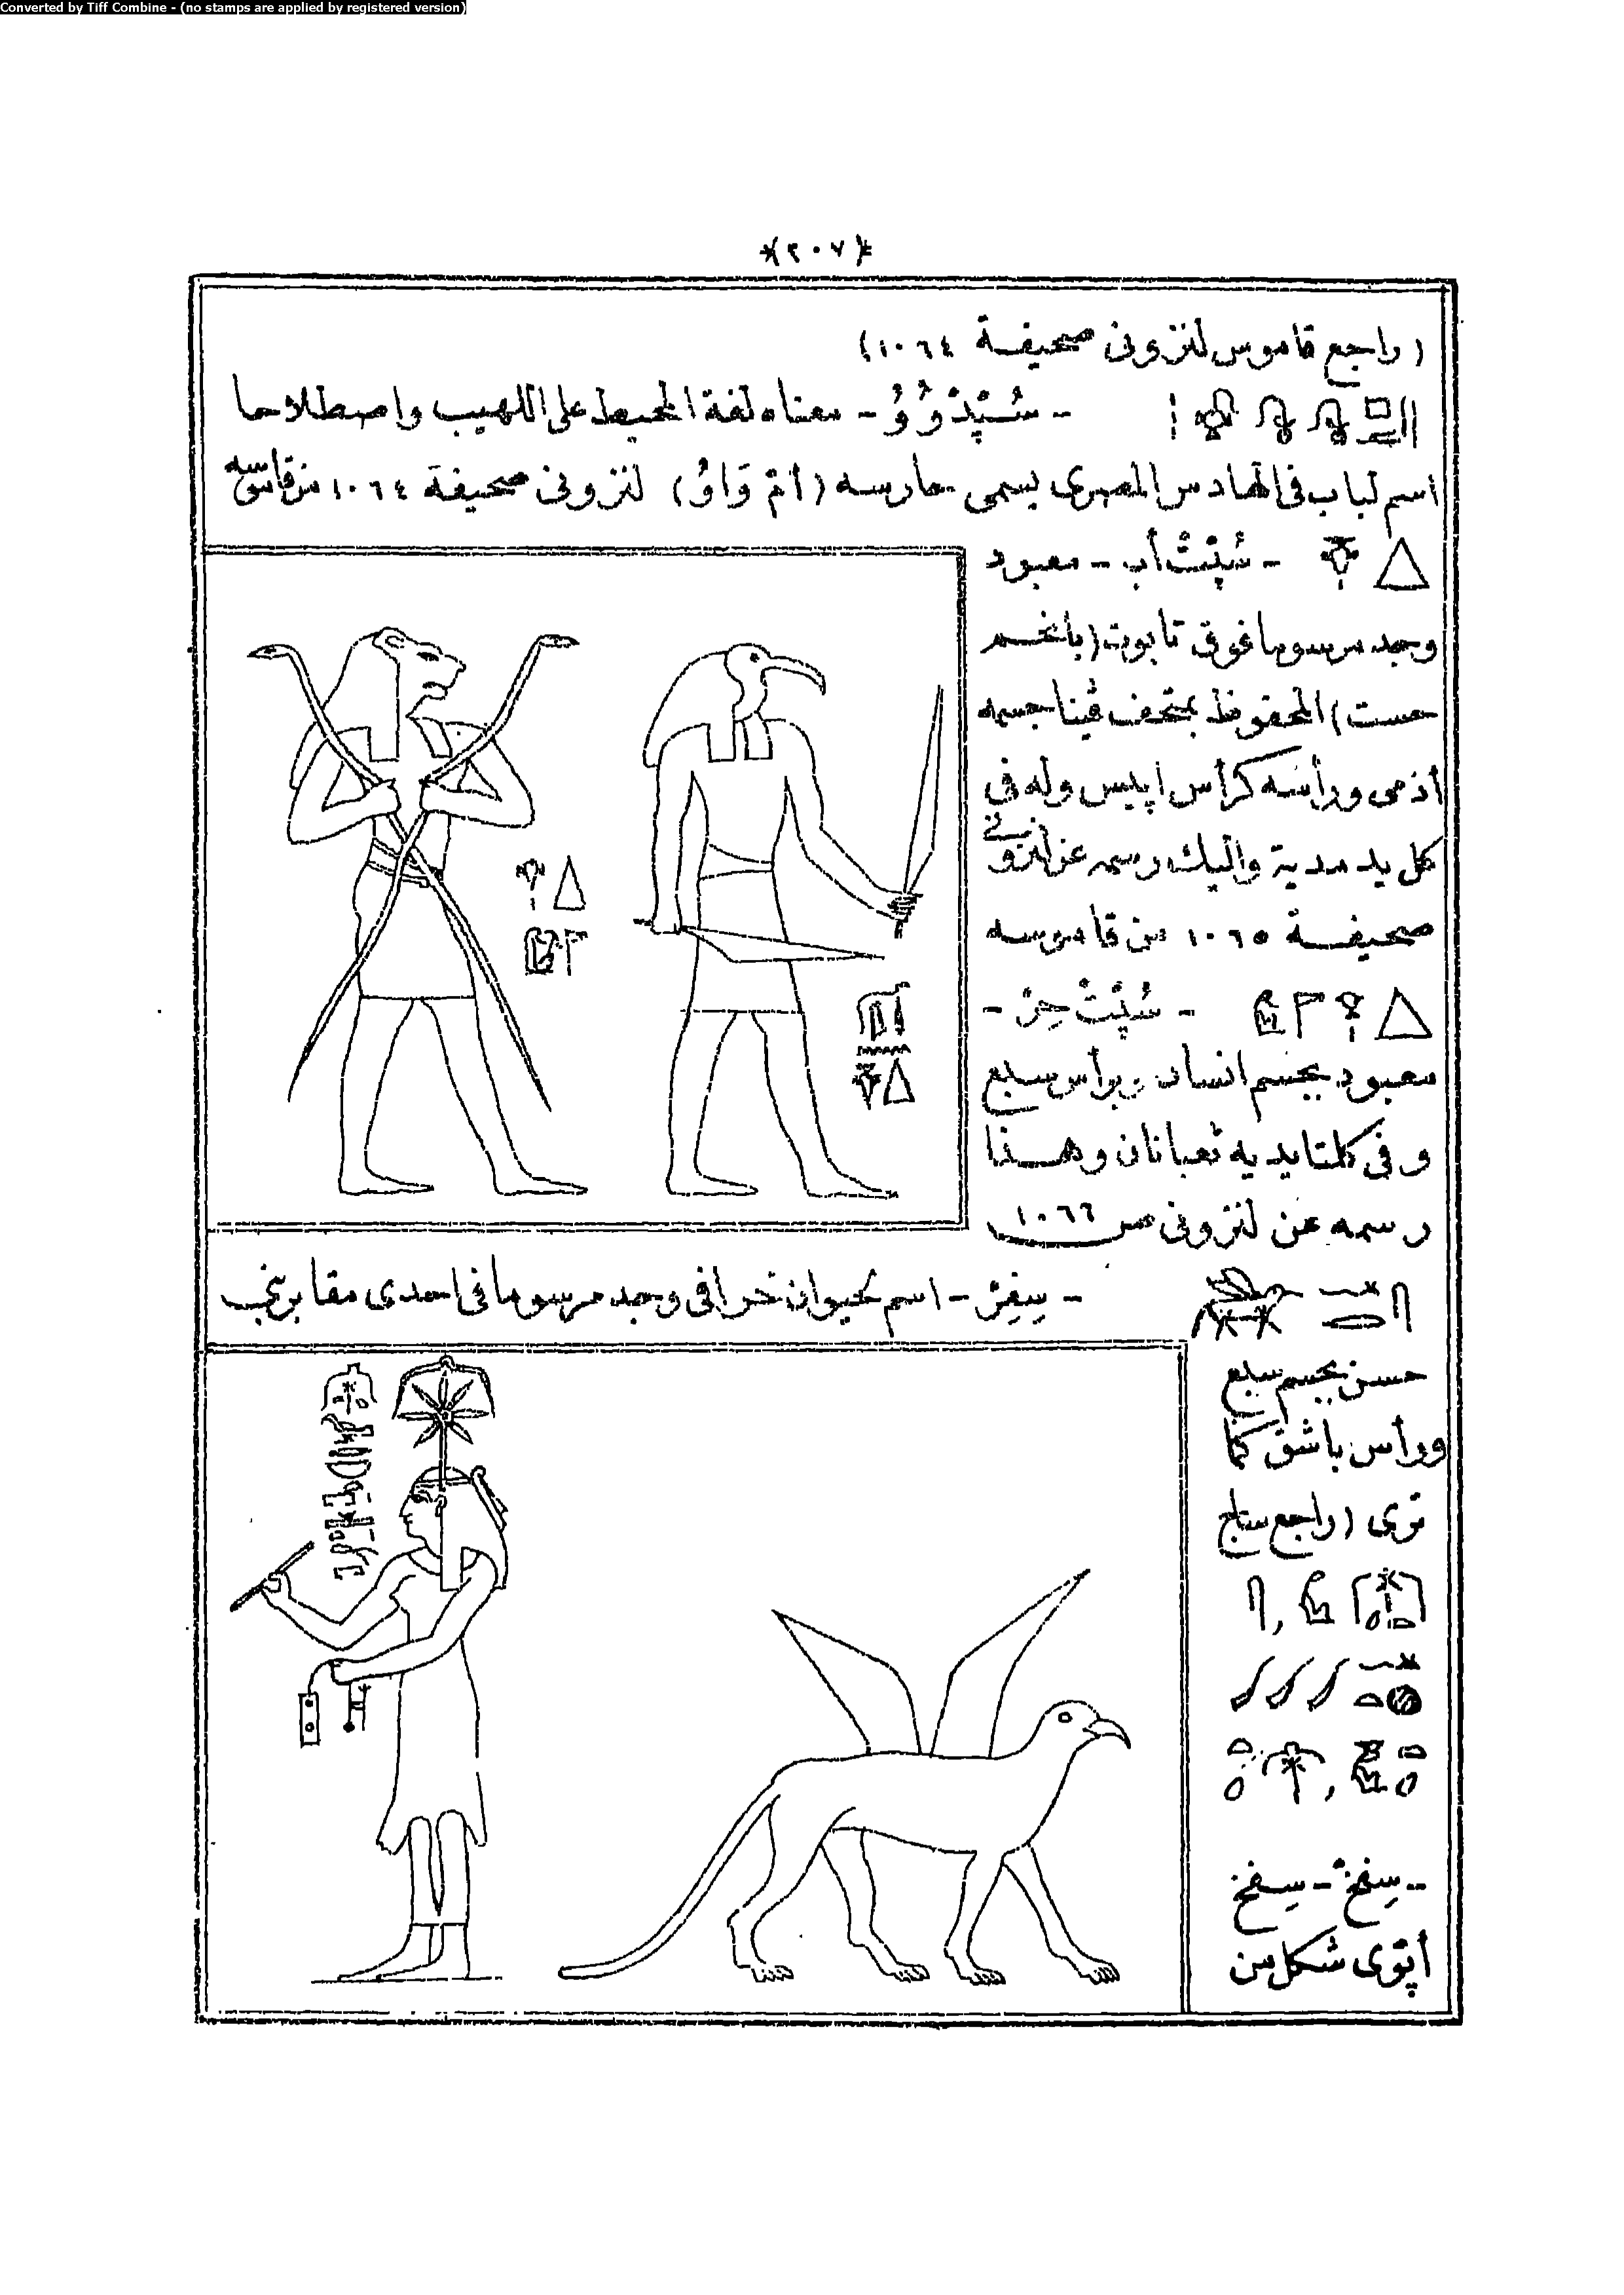 Converted by Tiff Combine - (no stamps are applied by registered version)
*(٢٠٧)*
(راجع قاموس لنزونى صحيفة ١٠٦٤)
- سُپِدْوُوُ - معناه لغة المحيط على اللهيب واصطلاحا
اسم لباب فى الهادس المصرى يسمى حارسه (أمْ وَاوُ) لنزونى صحيفة ١٠٦٤ من قاموسه
- سُپْتْ أب - معبود
وجد مرسوما فوق تابوت (پانخم
حست) المحفوظ بمتحف ڤينا جسمه
أدمى ورأسه كرأس اپيس وله فى
كل يد مدية واليك رسمه عن لنزونى
صحيفة ١٠٦٥ من قاموسه
- سُپْتْ حِرْ -
معبود بجسم انسان وبرأس سبع
وفى كلتا يديه ثعبانان وهذا
رسمه عن لنزونى ص ١٠٦٦
- سِفِرْ - اسم لحيوان خرافى وجد مرسوما فى احدى مقابر بنى
حسن بجسم سبع
ورأس باشق كما
ترى (راجع ستاج
- سِفِخْ - سِفِخ
أپوى شكل من